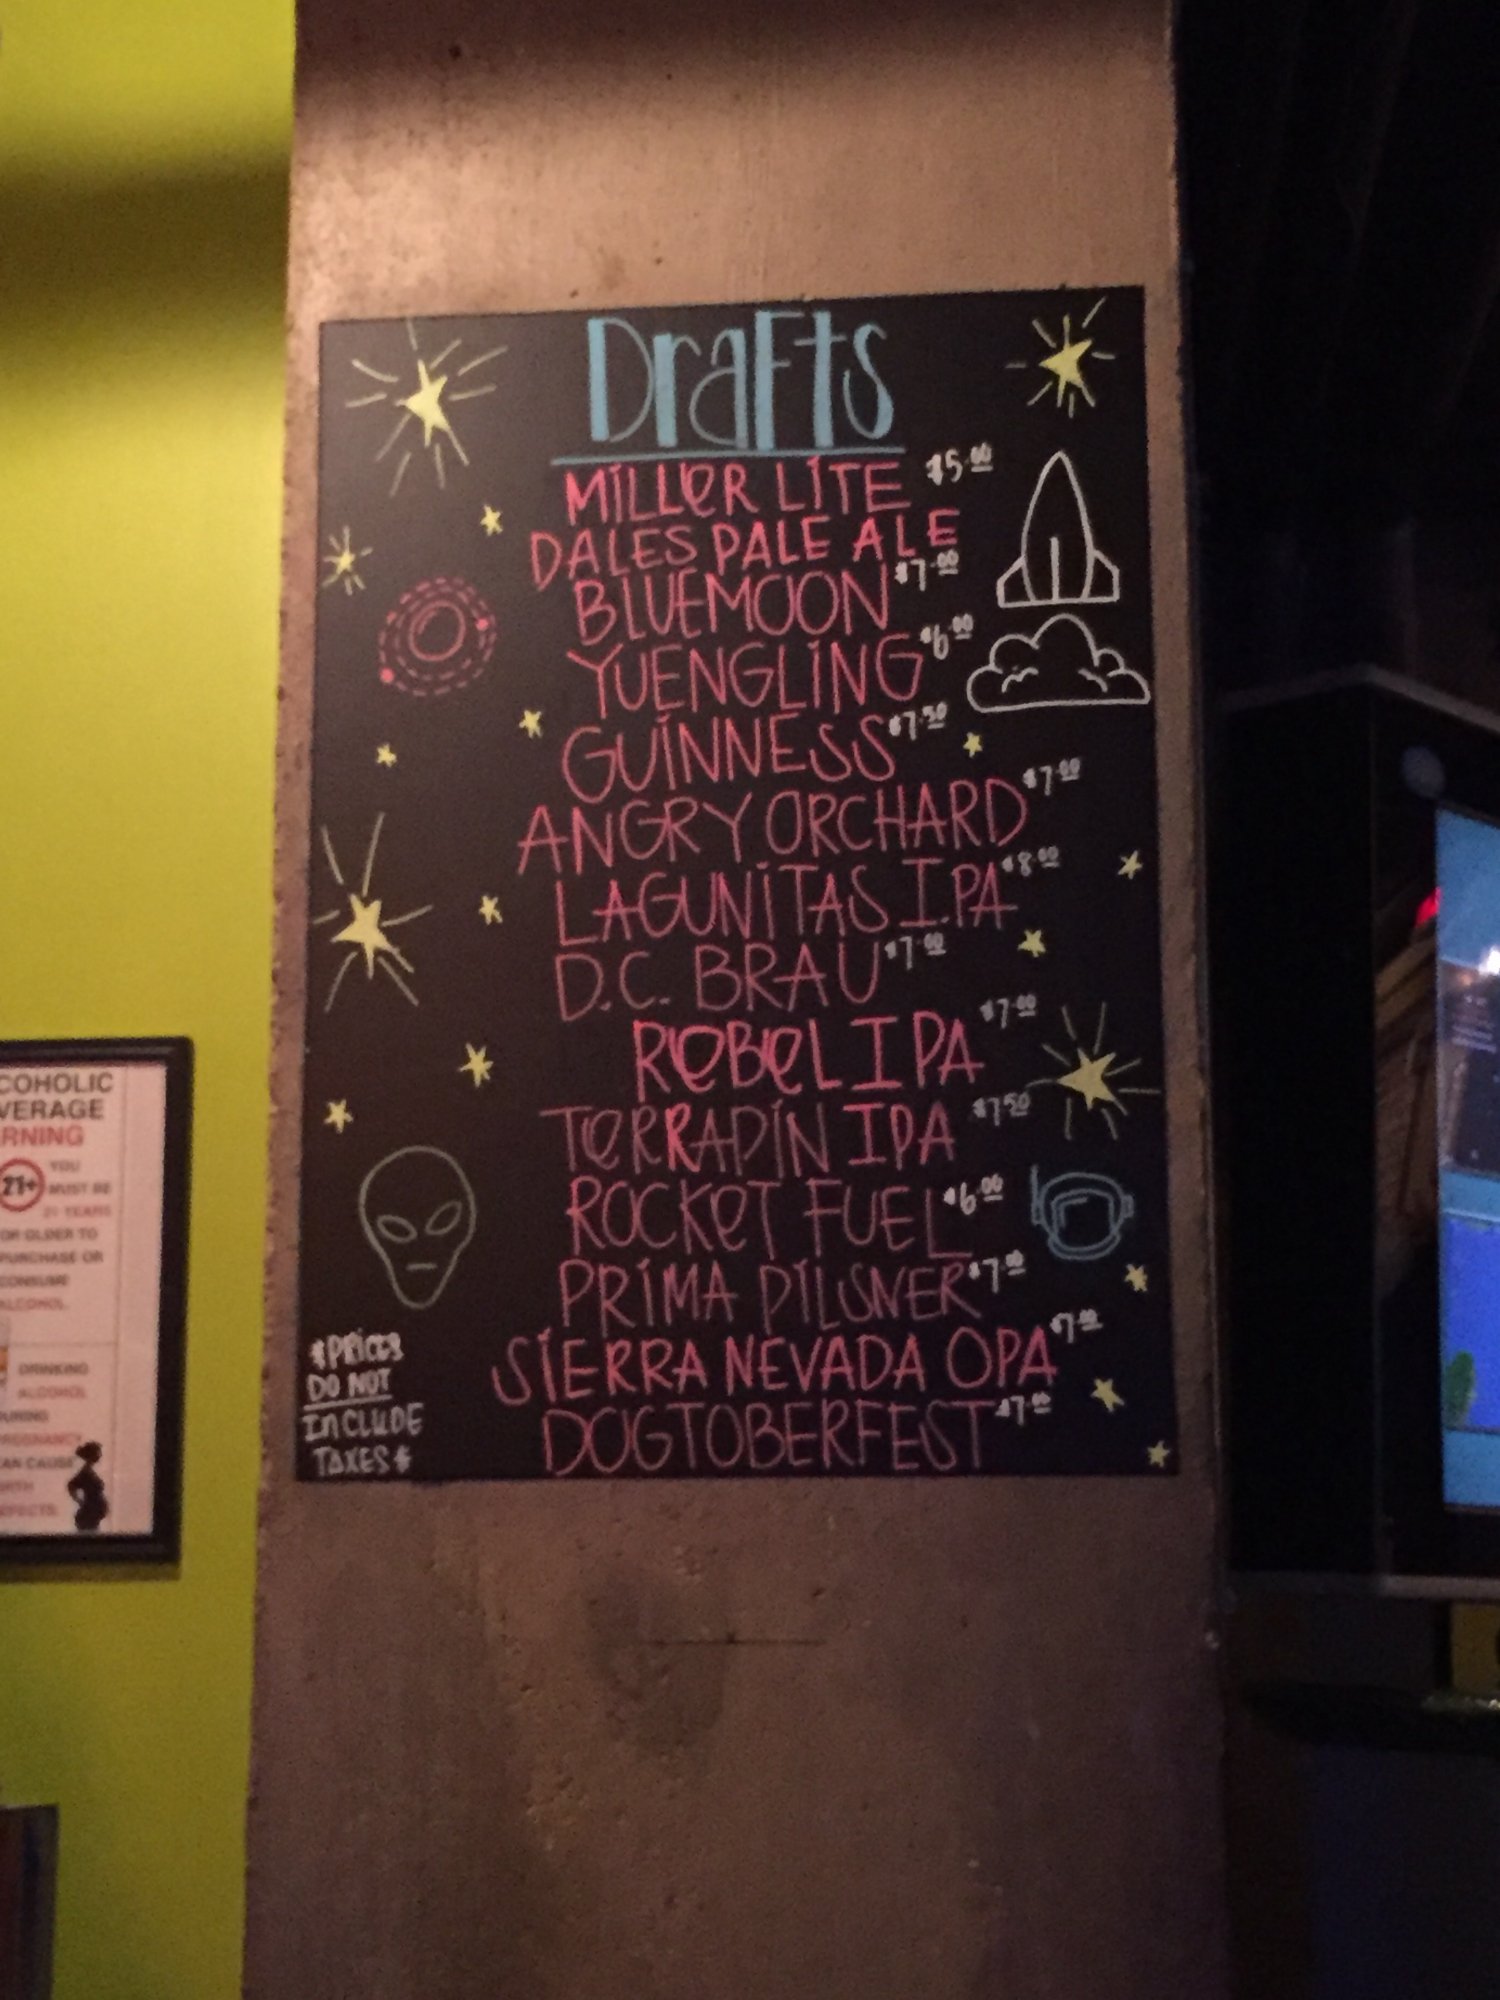 Drafts
MILLER LITE $5.00
DALES PALE ALE
BLUEMOON $7.00
YUENGLING $6.00
GUINNESS $7.50
ANGRY ORCHARD $7.00
LAGUNITAS I.PA $8.00
D.C. BRAU $7.00
REBEL IPA $7.00
TERRAPIN IPA $7.50
ROCKET FUEL $6.00
PRIMA PILSNER $7.00
SIERRA NEVADA OPA $7.00
DOGTOBERFEST $7.00
*PRICES
DO NOT
INCLUDE
TAXES*
COHOLIC
VERAGE
RNING
21+ YOU
MUST BE
21 YEARS
OR OLDER TO
PURCHASE OR
CONSUME
ALCOHOL.
DRINKING
ALCOHOL
URING
PREGNANCY
AN CAUSE
IRTH
EFECTS